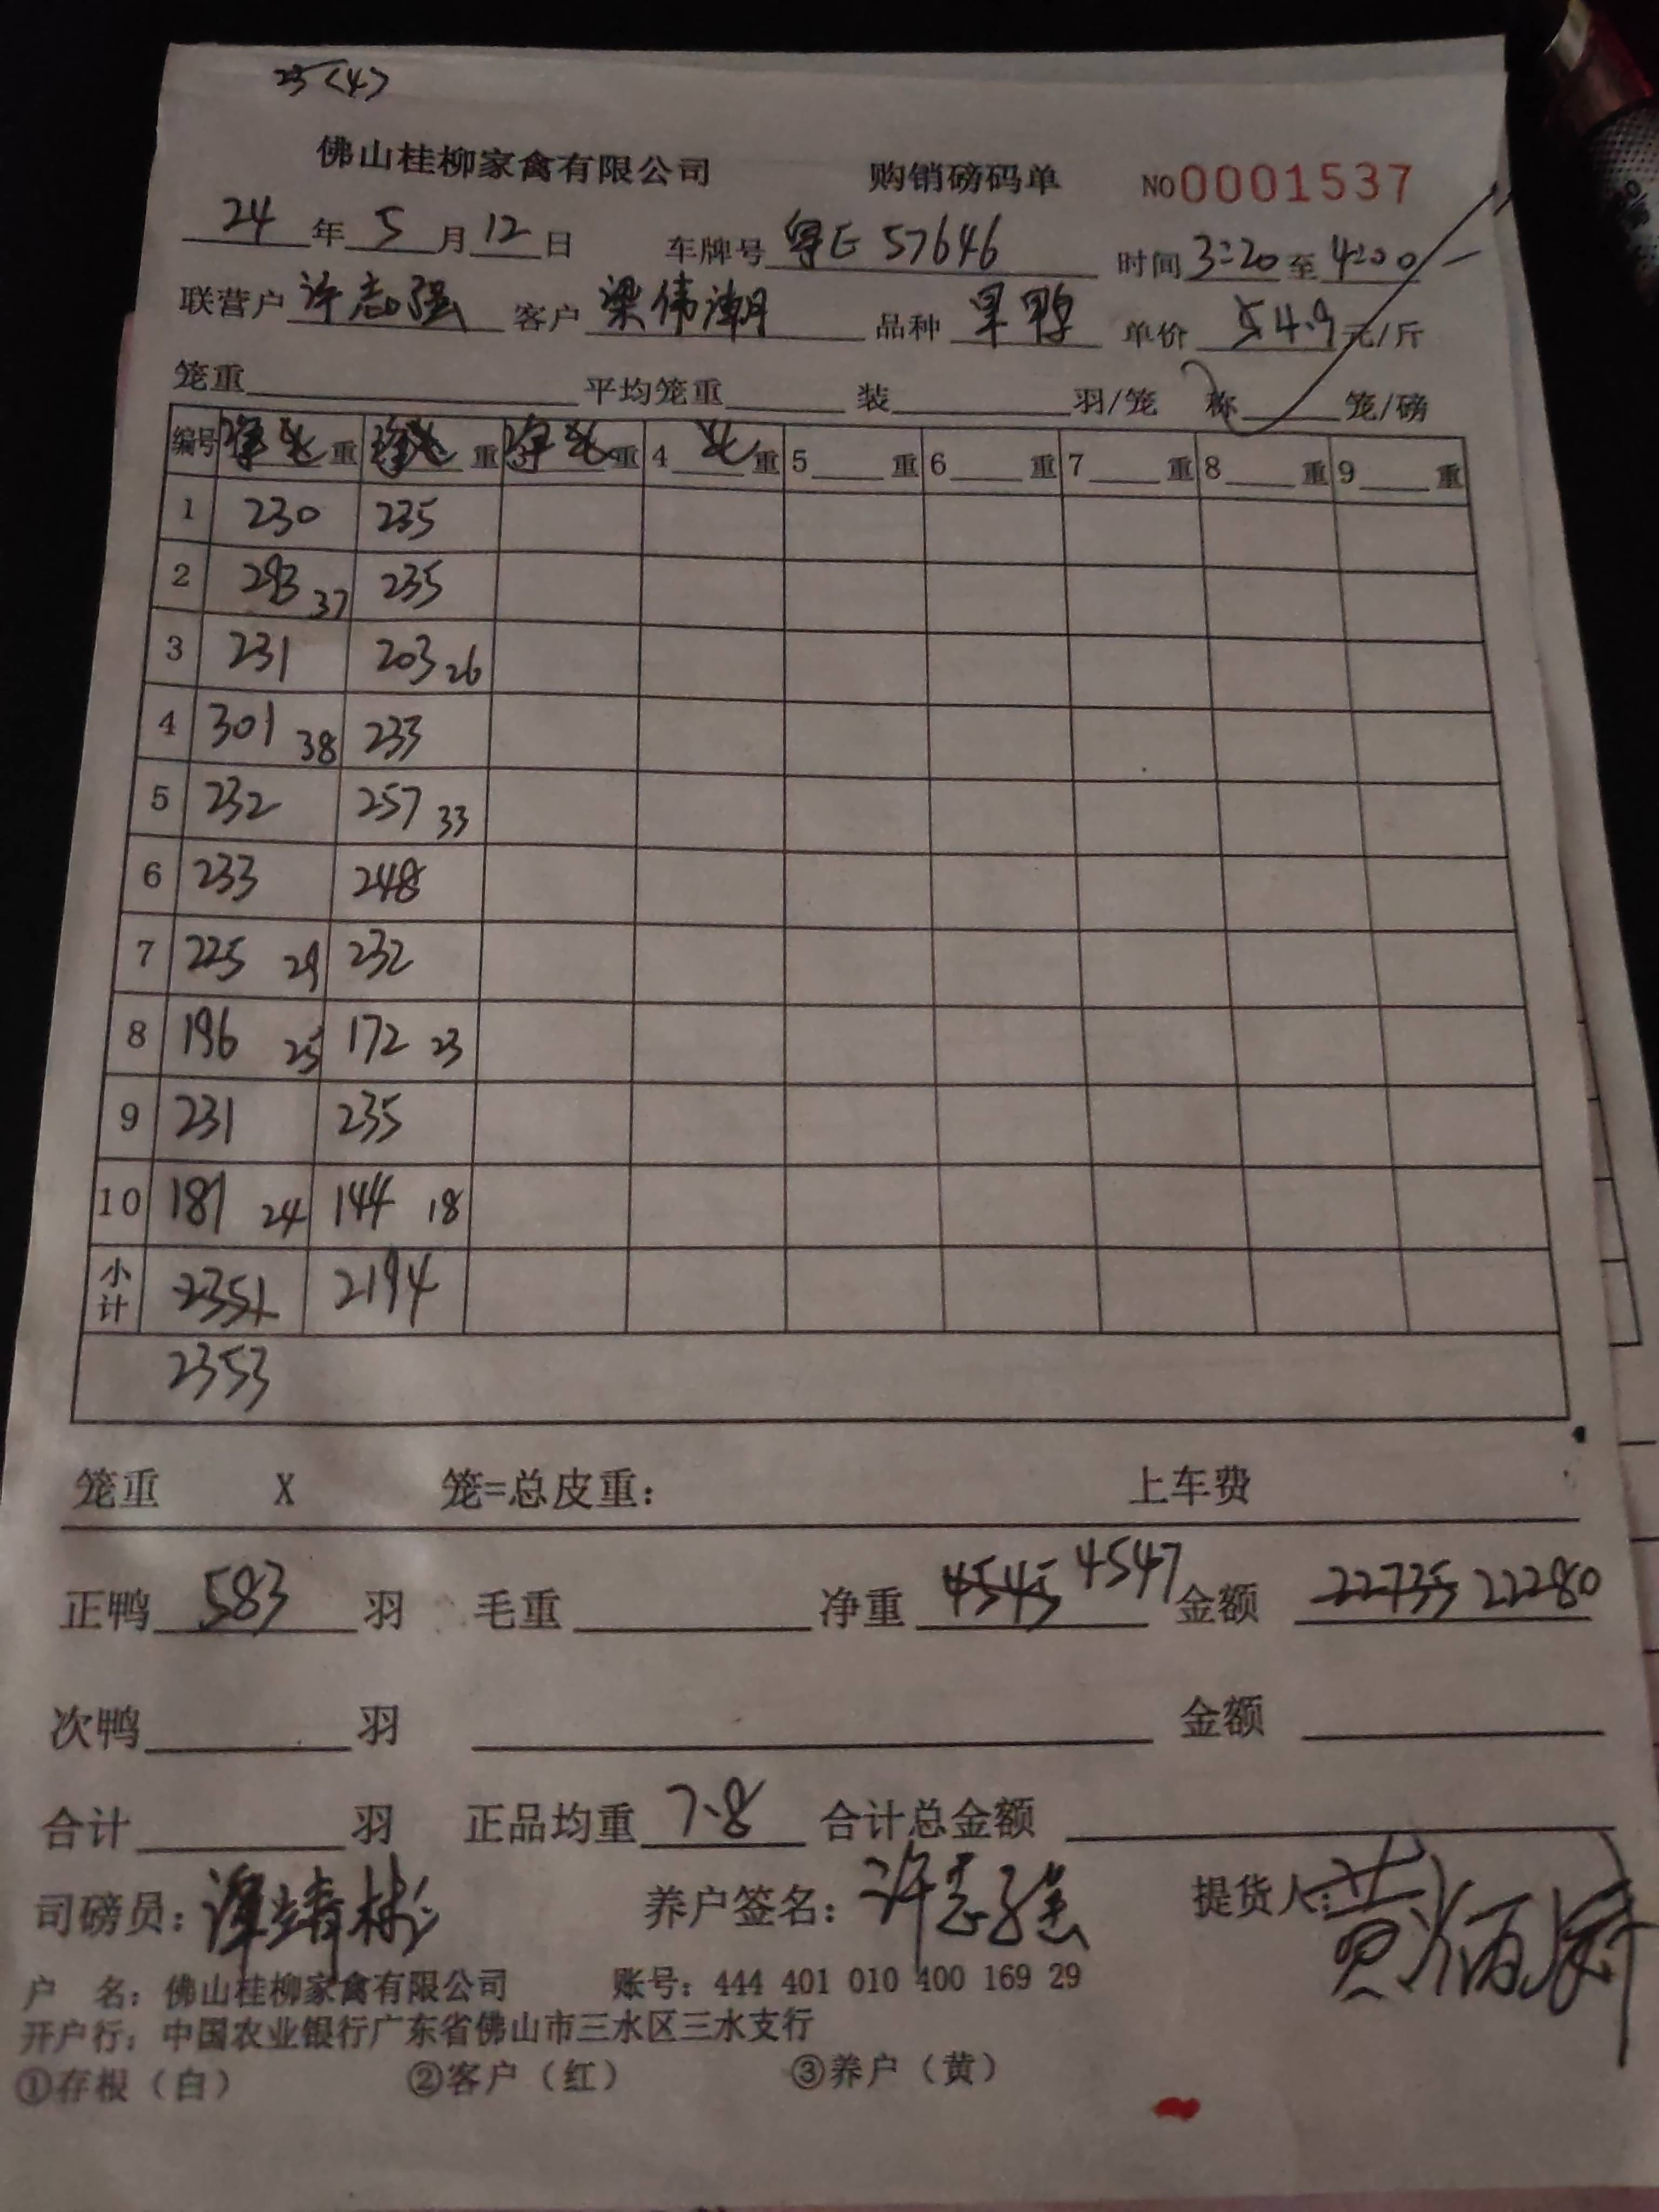 25<4>
佛山桂柳家禽有限公司 购销磅码单 NO0001537
24年5月12日 车牌号 粤E 57646 时间 3:20 至 4:00
联营户 许志强 客户 梁伟潮 品种 单价 5 4.9 元/斤
笼重 平均笼重 装 羽/笼 称 笼/磅
编号 重 重 重 4 重 5 重 6 重 7 重 8 重 9 重
1 230 235
2 293 37 235
3 231 203 26
4 301 38 233
5 232 257 33
6 233 248
7 225 29 232
8 196 25 172 23
9 231 235
10 181 24 144 18
小计 2351 2194
2353
笼重 X 笼=总皮重: 上车费
正鸭 583 羽 毛重 净重 4545 4547 金额 22735 22280
次鸭 羽 金额
合计 羽 正品均重 7.8 合计总金额
司磅员: 谭靖彬 养户签名: 许志强 提货人: 黄炳
户 名: 佛山桂柳家禽有限公司 账号: 444 401 010 400 169 29
开户行: 中国农业银行广东省佛山市三水区三水支行
①存根(白) ②客户(红) ③养户(黄)